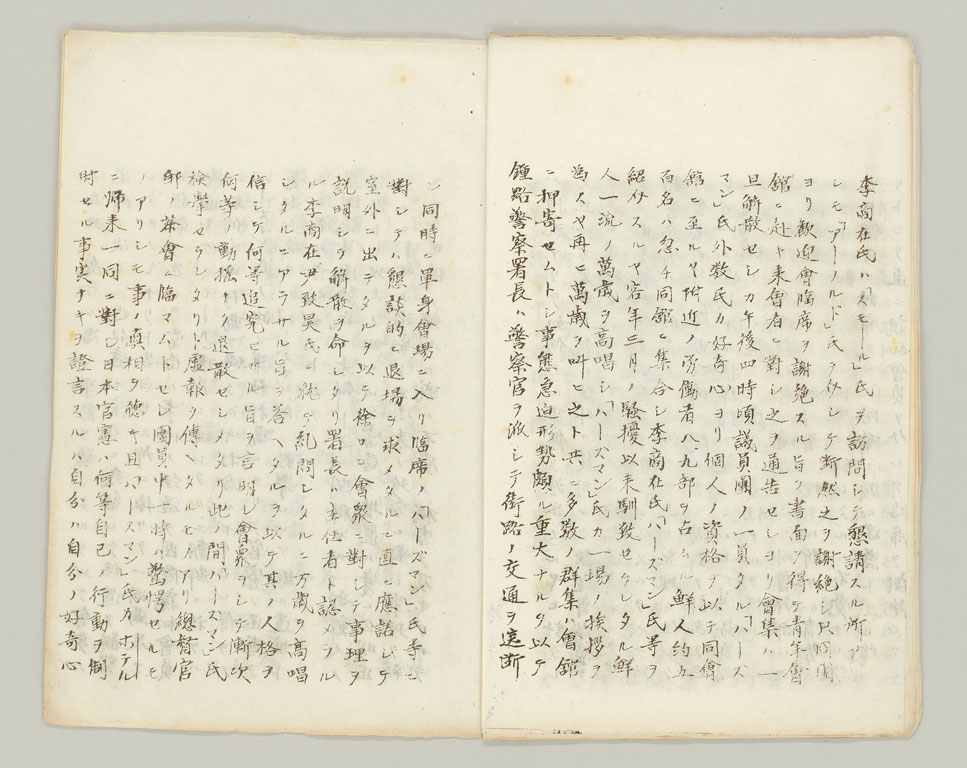 李商在氏ハ「スモール」氏ヲ訪問シテ懇請スル所ア
シモ「アーノルド」氏ヲ介シテ断然之ヲ謝絶シ只同團
ヨリ歓迎會臨席ヲ謝絶スル旨ノ書面ヲ得テ青年會
舘ニ赴キ来會者ニ對シ之ヲ通告セシヨリ會集ハ一
旦解散セシカ午後四時頃議員團ノ一員タル「ハース
マン」氏外数氏カ好奇心ヨリ個人ノ資格ヲ以テ同會
舘ニ至ルヤ附近ノ労働者八、九部ヲ占ムル鮮人約五
百名ハ忽チ同舘ニ集合シ李商在氏「ハースマン」氏等ヲ
紹介スルヤ客年三月ノ騒擾以来馴致セラレタル鮮
人一流ノ萬歳ヲ高唱シ「ハースマン」氏カ一場ノ挨拶ヲ
為スヤ再ヒ萬歳ヲ叫ヒ之ト共ニ多数ノ群集ハ會舘
ニ押寄セムトシ事態急迫形勢頗ル重大ナルヲ以テ
鍾路警察署長ハ警察官ヲ派シテ街路ノ交通ヲ遮断
シ同時ニ單身會場ニ入リ臨席ノ「ハースマン」氏等ニ
對シテハ懇談的ニ退場ヲ求メタルニ直ニ應諾シテ
室外ニ出テタルヲ以テ徐ロニ會衆ニ對シテ事理ヲ
説明シテ解散ヲ命シタリ署長ハ主任者ト認メタル
ル李商在尹致昊氏ニ就テ糺問シタルニ万歳ヲ高唱
シタルニアラサル旨ヲ答ヘタルヲ以テ其ノ人格ヲ
信シテ何等追究セサル旨ヲ言明シ會衆ヲシテ漸次
何等ノ動揺ナク退散セシメタリ此ノ間「ハースマン」氏
検擧セラレタリト虚報ヲ傳ヘタルモノアリ總督官
邸ノ茶會ニ臨マムトセシ團員中一時ハ驚愕セルモ
ノアリシモ事ノ真相ヲ聴キ且「ハースマン」氏カホテル
ニ帰来一同ニ對シ日本官憲ハ何等自己ノ行動ヲ制
肘セル事実ナキヲ證言スルハ自分ハ自分ノ好奇心